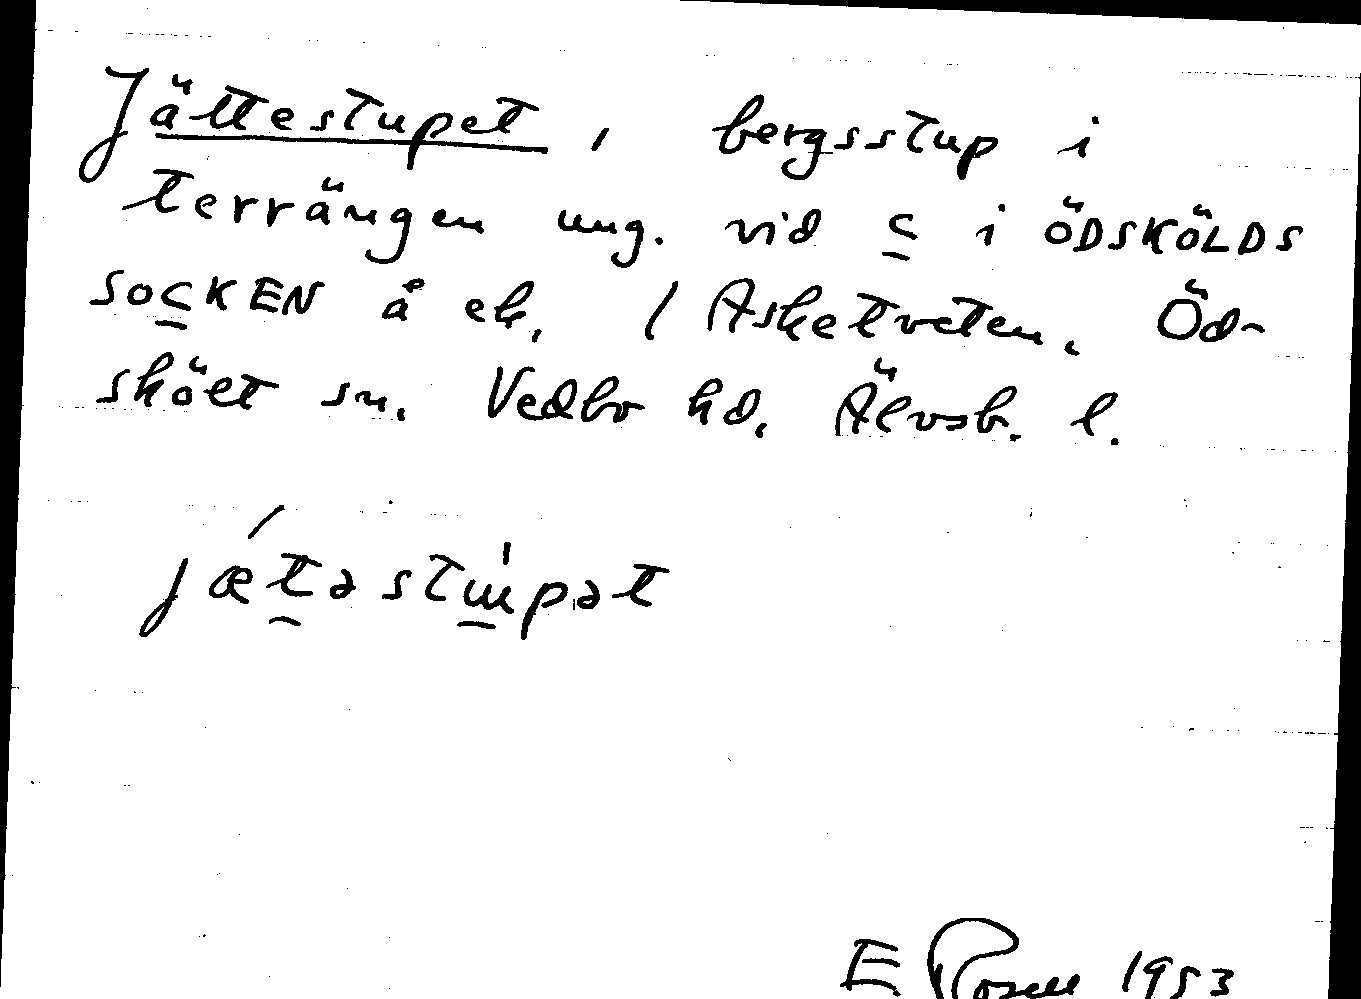 Jättestupet, bergsstup i
terrängen ung. vid c i ÖDSKÖLDS
SOCKEN å ek. / Asketveten. Öd-
skölt sn. Vedbo hd. Älvsb. l.
jæ´təstu̍pət
E Rosell 1953